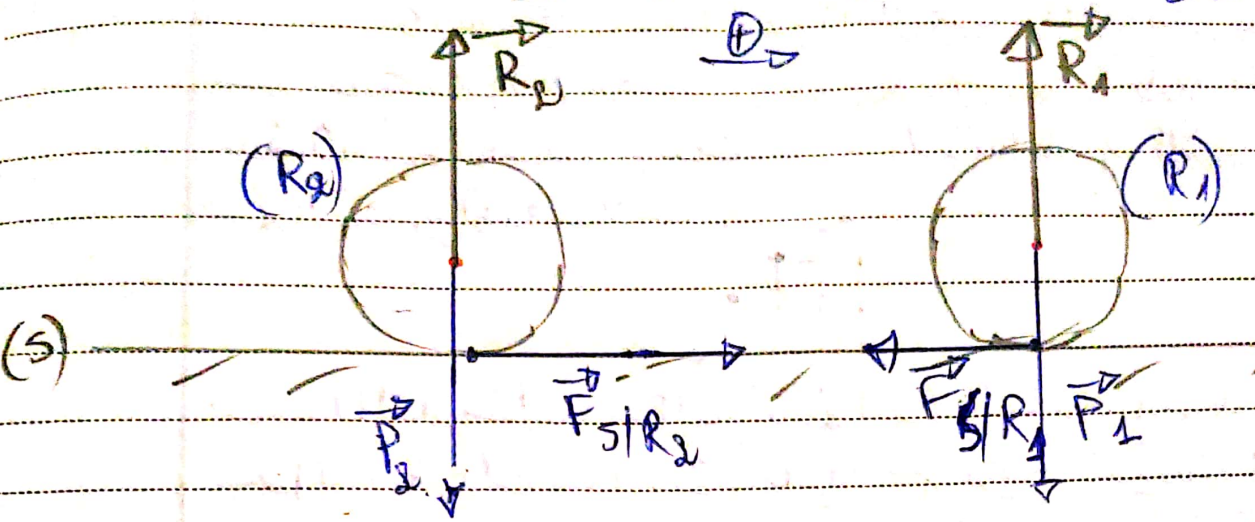 R₂ ⊕ R₁
(R₂) (R₁)
(S)
P₂ F S|R₂ F S|R₁ P₁